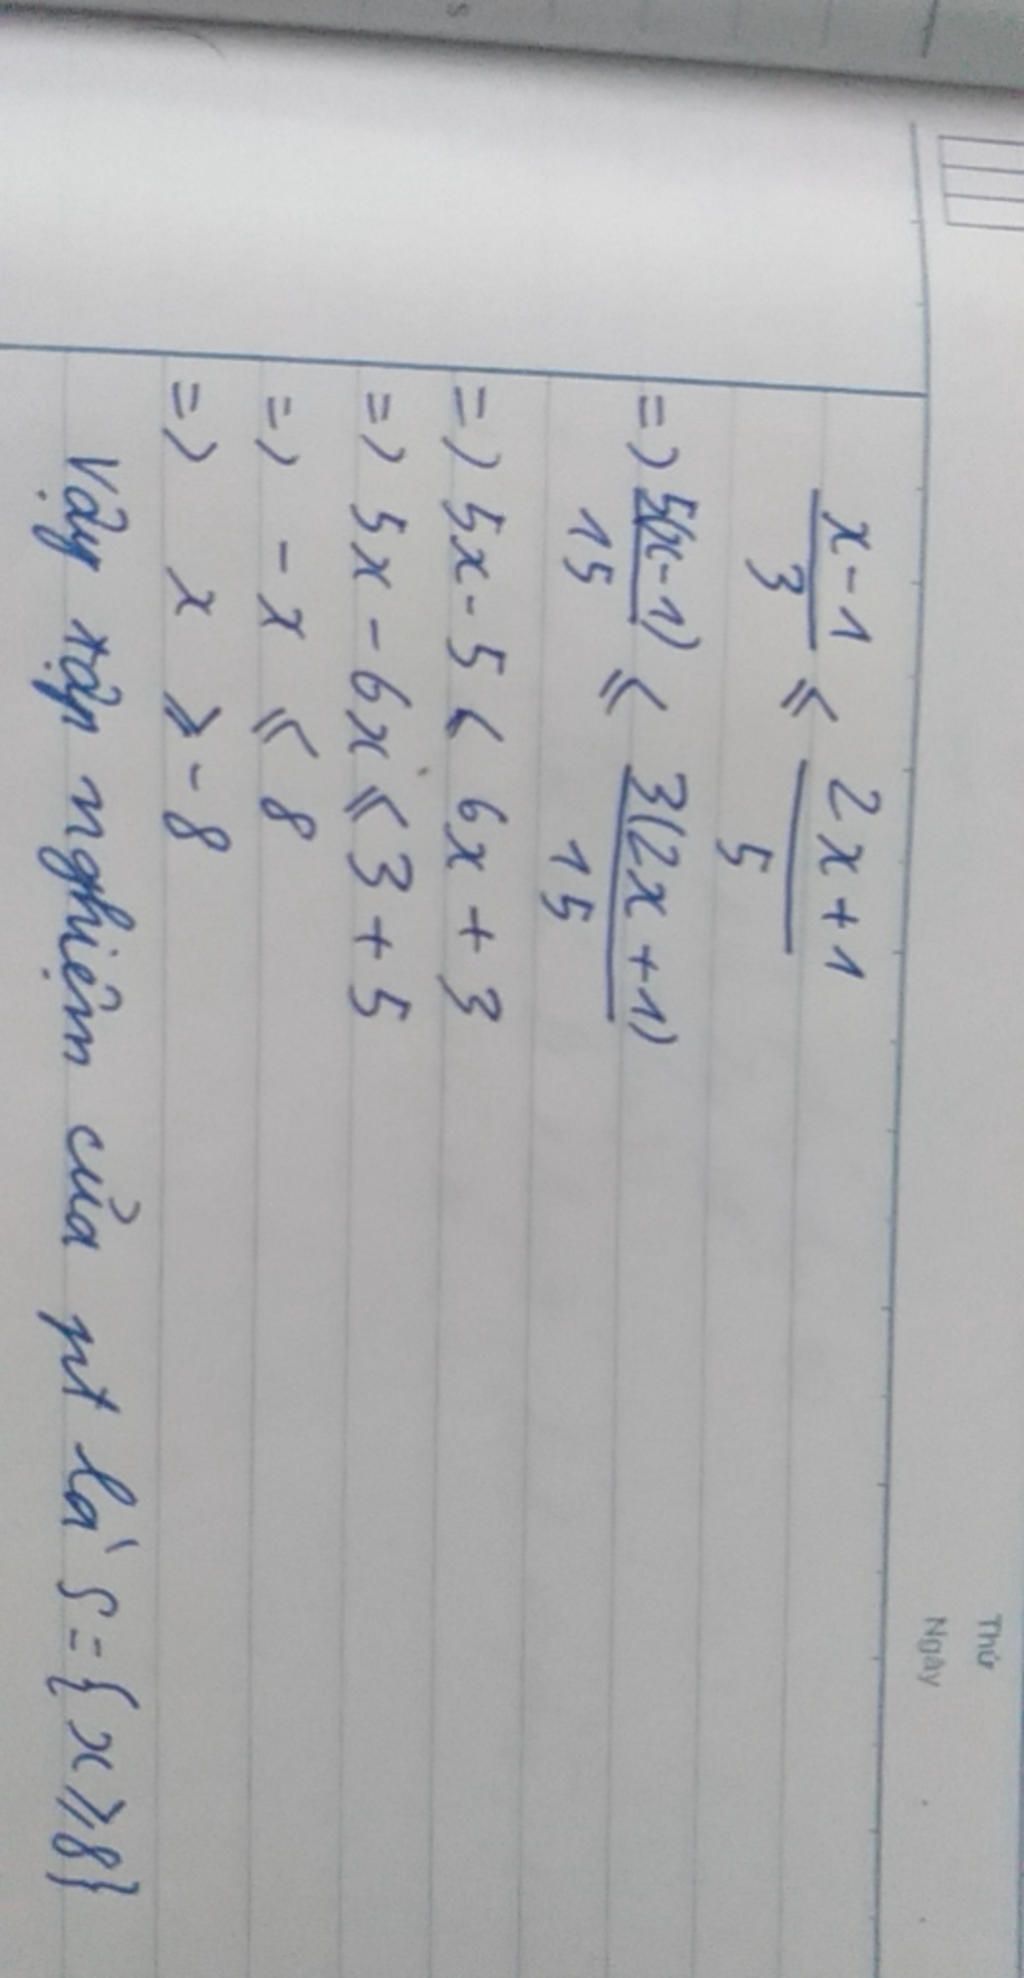 Thứ
Ngày
x-1/3 ⩽ 2x+1/5
=> 5(x-1)/15 ⩽ 3(2x+1)/15
=> 5x-5 < 6x+3
=> 5x-6x ⩽ 3+5
=> -x ⩽ 8
=> x ⩾ -8
Vậy tập nghiệm của pt là S={x⩾8}